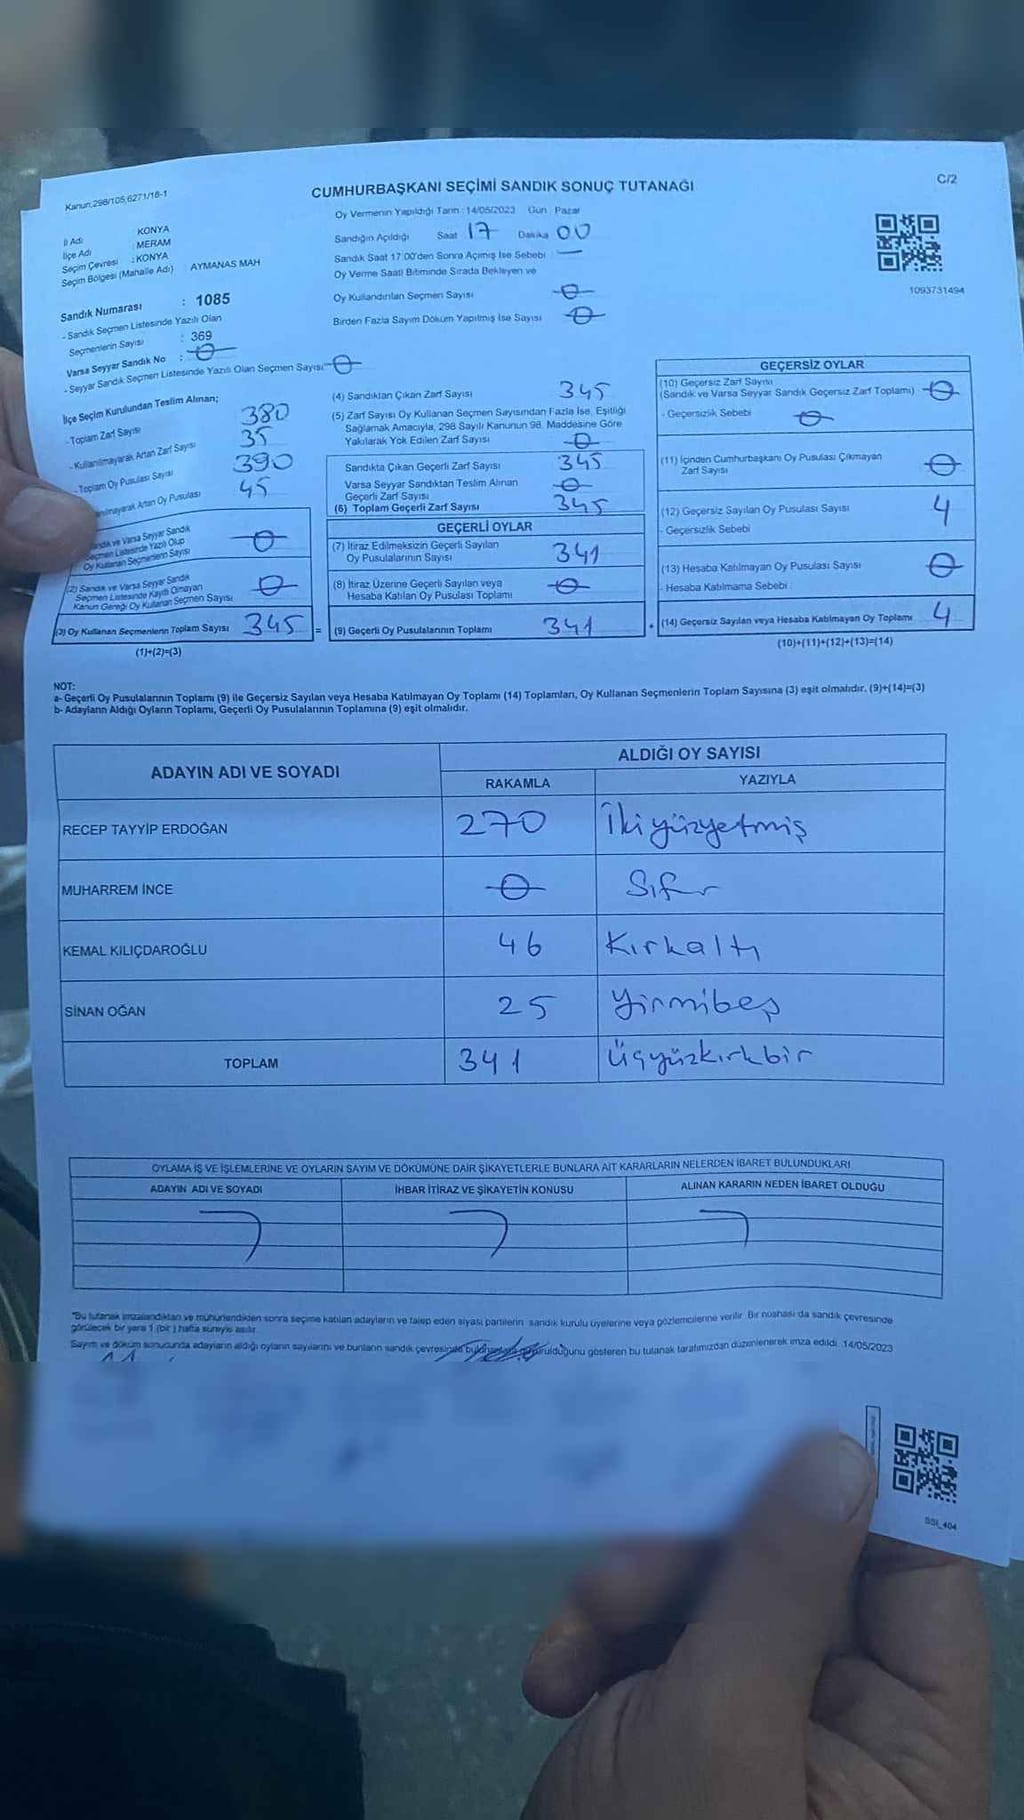 Kanun;298/105;6271/18-1
CUMHURBAŞKANI SEÇİMİ SANDIK SONUÇ TUTANAĞI
C/2
Oy Vermenin Yapıldığı Tarih : 14/05/2023 Gün : Pazar
İl Adı : KONYA
İlçe Adı : MERAM
Seçim Çevresi : KONYA
Seçim Bölgesi (Mahalle Adı) AYMANAS MAH
Sandığın Açıldığı Saat 17 Dakika 00
Sandık Saat 17:00'den Sonra Açımış İse Sebebi : —
Oy Verme Saati Bitiminde Sırada Bekleyen ve
Oy Kullandırılan Seçmen Sayısı 0
Birden Fazla Sayım Döküm Yapılmış İse Sayısı 0
1093731494
Sandık Numarası : 1085
- Sandık Seçmen Listesinde Yazılı Olan
Seçmenlerin Sayısı : 369
Varsa Seyyar Sandık No : 0
- Seyyar Sandık Seçmen Listesinde Yazılı Olan Seçmen Sayısı: 0
İlçe Seçim Kurulundan Teslim Alınan;
- Toplam Zarf Sayısı 380
- Kullanılmayarak Artan Zarf Sayısı 35
- Toplam Oy Pusulası Sayısı 390
Artan Oy Pusulası 45
Sandık ve Varsa Seyyar Sandık
Seçmen Listesinde Yazılı Olup
Oy Kullanan Seçmenlerin Sayısı 0
(2) Sandık ve Varsa Seyyar Sandık
Seçmen Listesinde Kayıtlı Olmayan
Kanun Gereği Oy Kullanan Seçmen Sayısı 0
(3) Oy Kullanan Seçmenlerin Toplam Sayısı 345 =
(1)+(2)=(3)
(4) Sandıktan Çıkan Zarf Sayısı 345
(5) Zarf Sayısı Oy Kullanan Seçmen Sayısından Fazla İse, Eşitliği
Sağlamak Amacıyla, 298 Sayılı Kanunun 98. Maddesine Göre
Yakılarak Yok Edilen Zarf Sayısı 0
Sandıkta Çıkan Geçerli Zarf Sayısı 345
Varsa Seyyar Sandıktan Teslim Alınan
Geçerli Zarf Sayısı 0
(6) Toplam Geçerli Zarf Sayısı 345
GEÇERLİ OYLAR
(7) İtiraz Edilmeksizin Geçerli Sayılan
Oy Pusulalarının Sayısı 341
(8) İtiraz Üzerine Geçerli Sayılan veya
Hesaba Katılan Oy Pusulası Toplamı 0
(9) Geçerli Oy Pusulalarının Toplamı 341 +
GEÇERSİZ OYLAR
(10) Geçersiz Zarf Sayısı
(Sandık ve Varsa Seyyar Sandık Geçersiz Zarf Toplamı) 0
- Geçersizlik Sebebi 0
(11) İçinden Cumhurbaşkanı Oy Pusulası Çıkmayan
Zarf Sayısı 0
(12) Geçersiz Sayılan Oy Pusulası Sayısı 4
- Geçersizlik Sebebi
(13) Hesaba Katılmayan Oy Pusulası Sayısı 0
- Hesaba Katılmama Sebebi :
(14) Geçersiz Sayılan veya Hesaba Katılmayan Oy Toplamı 4
(10)+(11)+(12)+(13)=(14)
NOT:
a- Geçerli Oy Pusulalarının Toplamı (9) ile Geçersiz Sayılan veya Hesaba Katılmayan Oy Toplamı (14) Toplamları, Oy Kullanan Seçmenlerin Toplam Sayısına (3) eşit olmalıdır. (9)+(14)=(3)
b- Adayların Aldığı Oyların Toplamı, Geçerli Oy Pusulalarının Toplamına (9) eşit olmalıdır.
ADAYIN ADI VE SOYADI
ALDIĞI OY SAYISI
RAKAMLA YAZIYLA
RECEP TAYYİP ERDOĞAN 270 İkiyüzyetmiş
MUHARREM İNCE 0 Sıfır
KEMAL KILIÇDAROĞLU 46 Kırkaltı
SİNAN OĞAN 25 Yirmibeş
TOPLAM 341 Üçyüzkırkbir
OYLAMA İŞ VE İŞLEMLERİNE VE OYLARIN SAYIM VE DÖKÜMÜNE DAİR ŞİKAYETLERLE BUNLARA AİT KARARLARIN NELERDEN İBARET BULUNDUKLARI
ADAYIN ADI VE SOYADI İHBAR İTİRAZ VE ŞİKAYETİN KONUSU ALINAN KARARIN NEDEN İBARET OLDUĞU
"Bu tutanak imzalandıktan ve mühürlendikten sonra seçime katılan adayların ve talep eden siyasi partilerin sandık kurulu üyelerine veya gözlemcilerine verilir. Bir nüshası da sandık çevresinde
görülecek bir yere 1 (bir ) hafta süreyle asılır.
Sayım ve döküm sonucunda adayların aldığı oyların sayılarını ve bunların sandık çevresinde gösteren bu tutanak tarafımızdan düzenlenerek imza edildi. 14/05/2023
SSI_404